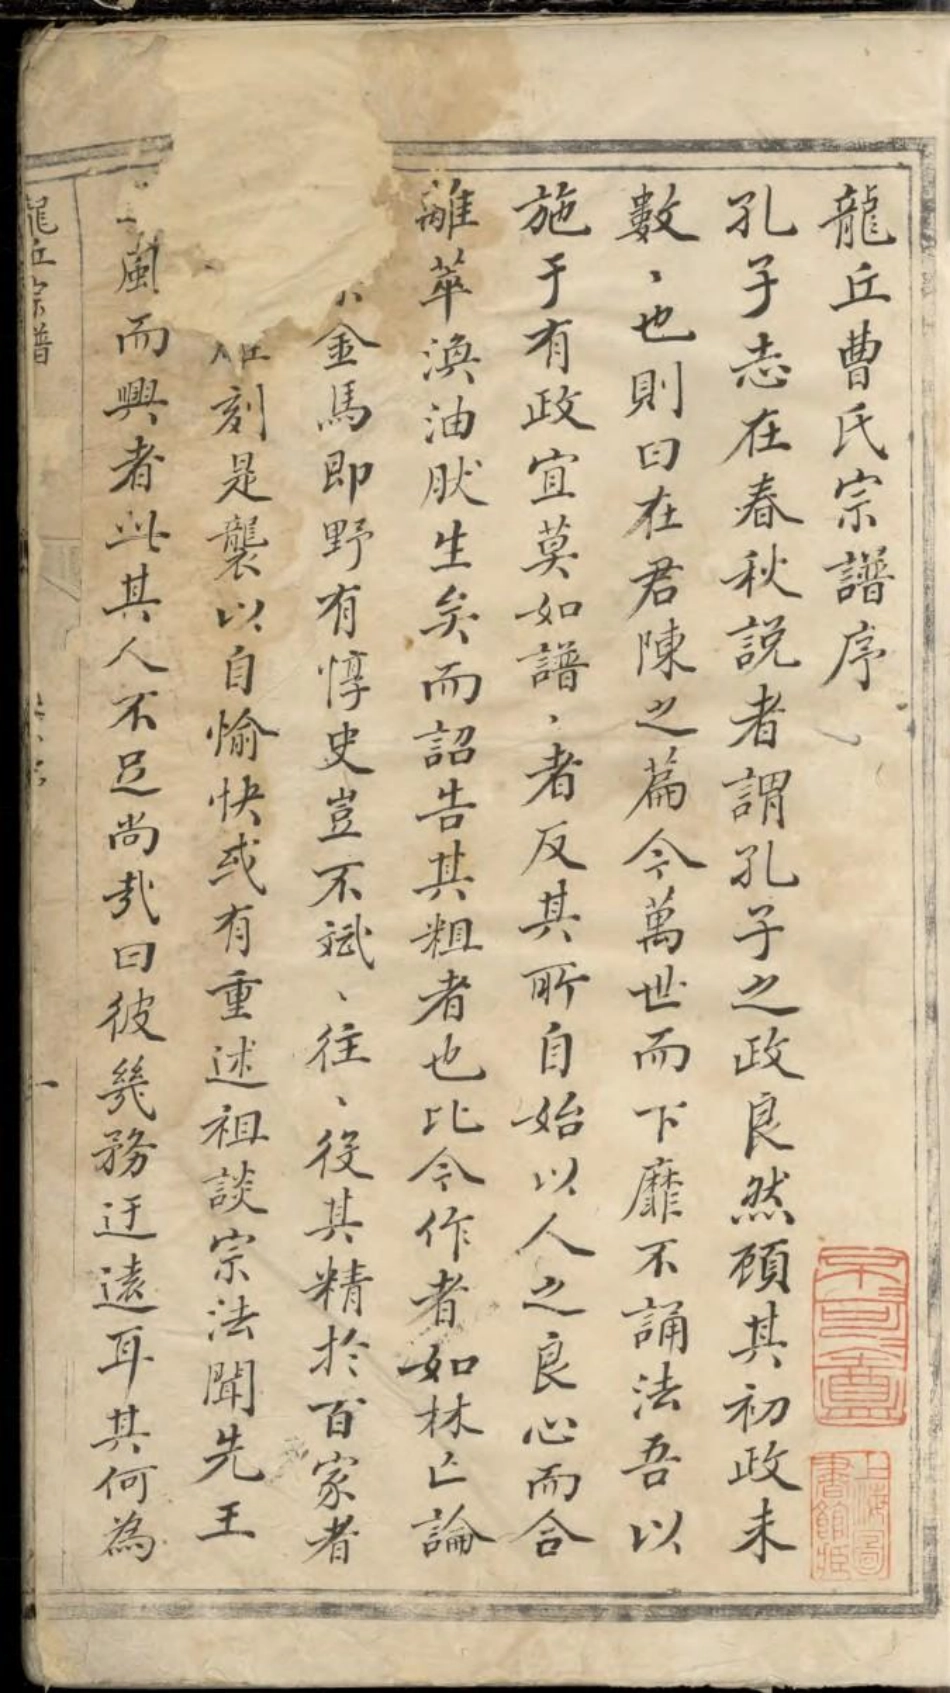 龍丘曹氏宗譜序
孔子志在春秋説者謂孔子之政良然頋其初政未
數、也則曰在君陳之篇今萬世而下靡不誦法吾以
施于有政宜莫如譜、者反其所自始以人之良心而合
離萃渙油肰生矣而詔告其粗者也比今作者如林亡論
金馬即野有惇史豈不斌、往、役其精於百家者
刻是襲以自愉快或有重述祖談宗法聞先王
風而興者此其人不足尚哉曰彼幾務迂遠耳其何為
龍丘宗譜
一
上海圖書館藏